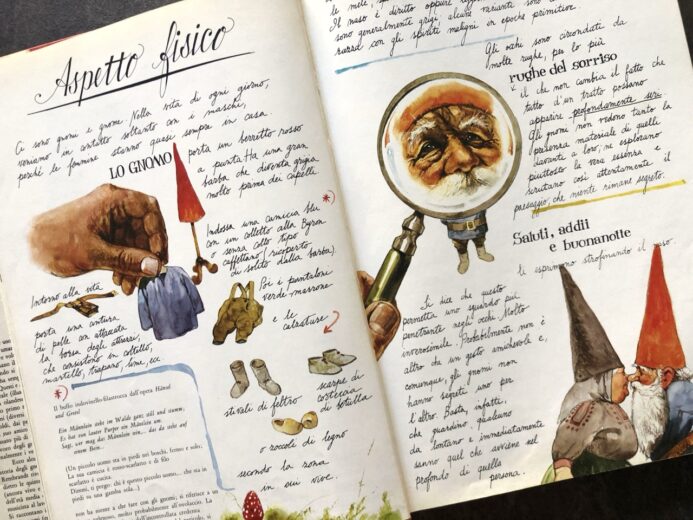 Aspetto fisico
Ci sono gnomi e gnome. Nella vita di ogni giorno,
veniamo in contatto soltanto con i maschi,
perché le femmine stanno quasi sempre in casa.
LO GNOMO
porta un berretto rosso
a punta. Ha una gran
barba che diventa grigia
molto prima dei capelli.
Indossa una camicia blu
con un colletto alla Byron
o senza collo tipo
caffettano (ricoperto
di solito dalla barba).
Intorno alla vita
porta una cintura
di pelle con attaccata
la borsa degli attrezzi,
che consistono in coltello,
martello, trapano, lime, ecc
Poi i pantaloni
verde-marrone
e le
calzature
stivali di feltro
scarpe di
corteccia
di betulla
o zoccoli di legno
secondo la zona
in cui vive.
Il bullo indovinello-filastrocca dall'opera Hänsel
und Gretel
Ein Männlein steht im Walde ganz still und stumm,
Es hat von lauter Purpur ein Mäntlein um.
Sagt, wer mag das Männlein sein... das da steht auf
einem Bein..
(Un piccolo uomo sta in piedi nei boschi, fermo e solo;
La sua camicia è rosso-scarlatto e di filo
Dimmi, ti prego: chi è questo piccolo uomo... che sta in
piedi su una gamba sola...)
non ha niente a che fare con gli gnomi; si riferisce a un
Il naso è diritto oppure
sono generalmente grigi, alcune varianti sono
razza con gli spiriti maligni in epoche primitive.
Gli occhi sono circondati da
molte rughe, per lo più
rughe del sorriso
il che non cambia il fatto che
tutto d'un tratto possano
apparire profondamente seri.
Gli gnomi non vedono tanto la
presenza materiale di quelli
davanti a loro, ne esplorano
piuttosto la vera essenza e
scrutano così attentamente il
paesaggio, che niente rimane segreto.
Saluti, addii
e buonanotte
si esprimono strofinando il naso.
Si dice che questo
permetta uno sguardo più
penetrante negli occhi. Molto
inverosimile. Probabilmente non è
altro che un gesto amichevole e,
comunque, gli gnomi non
hanno segreti uno per
l'altro. Basta, infatti,
che guardino qualcuno
da lontano e immediatamente
sanno quel che avviene nel
profondo di quella
persona.